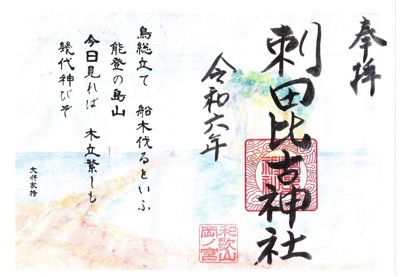 奉拝
刺田比古神社
和歌山
岡ノ宮
令和六年
鳥総立て 船木伐るといふ
能登の島山
今日見れば 木立繁しも
幾代神びそ
大伴家持